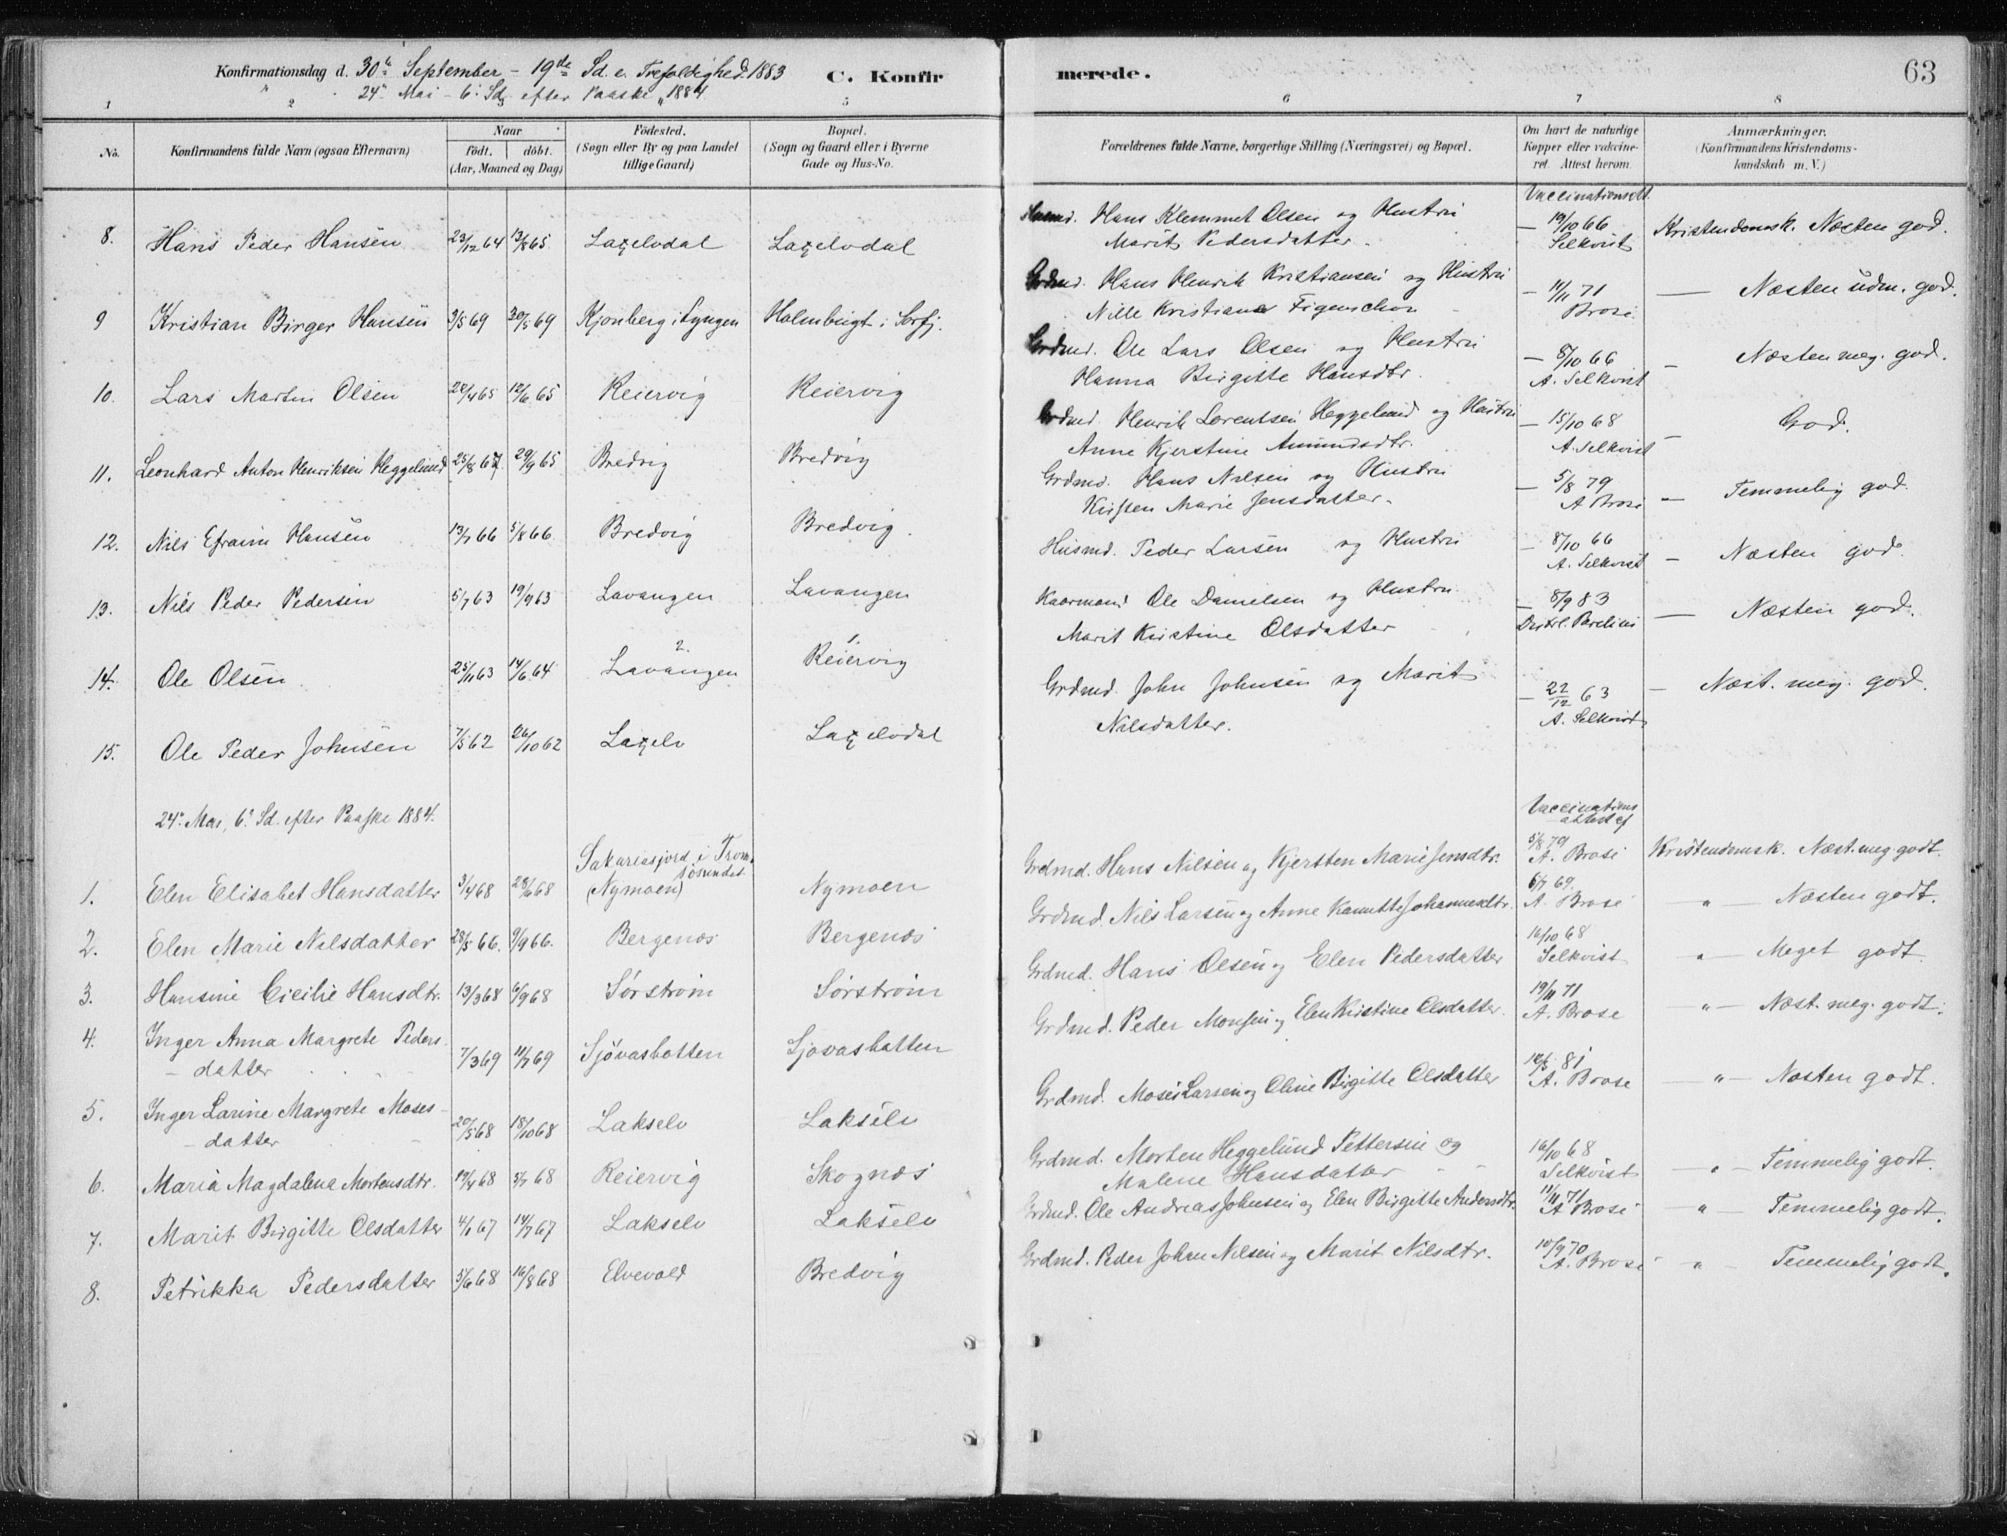 Konfirmationsdag d. 30te September - 19de Sd. e. Trefoldighed 1883 C. Konfirmerede. 63
" " 24de Mai - 6te Sdg efter Paaske " 1884
1 2 5 6 7 8
No. Konfirmandens fulde Navn (ogsaa Efternavn) Naar födt. döbt. (Aar, Maaned og Dag) Födested. (Sogn eller By og paa Landet tillige Gaard) Bopæl. (Sogn og Gaard eller i Byerne Gade og Hus-No. Forældrenes fulde Navne, borgerlige Stilling (Næringsvei) og Bopæl. Om havt de naturlige Kopper eller vaccineret. Attest herom. Anmærkninger. (Konfirmandens Kristendomskundskab m. V.)
Vaccinationsatt.
8. Hans Peder Hansen 23/12 64 13/8 65 Laxelvdal Laxelvdal Husmd. Hans Klemmet Olsen og Hustru — 19/10 66 Kristendomsk. Næsten god.
Marit Pedersdatter. Selkvist
9 Kristian Birger Hansen 3/5 69 30/5 69 Kjosberg i Lyngen Holmbugt i Sorfj. Grdmd. Hans Henrik Kristiansen og Hustru — 11/11 71 — Næsten udm. god.
Nille Kristiane Figenschou Brose
10. Lars Martin Olsen 22/4 65 12/6 65 Reiervig Reiervig Grdmd. Ole Lars Olsen og Hustru — 8/10 66 — Næsten meg. god.
Hanna Birgitte Hansdtr. A. Selkvist
11. Leonhard Anton Henriksen Heggelund 25/8 67 29/9 65 Bredvig Bredvig Grdmd. Henrik Lorentsen Heggelund og Hustru — 15/10 68 — God.
Anne Kjerstine Amundsdtr. A. Selkvist
12. Nils Efraim Hansen 13/7 66 5/8 66 Bredvig Bredvig. Grdmd. Hans Nilsen og Hustru — 5/8 79 — Temmelig god.
Kirsten Marie Jensdatter. A Brose
13. Nils Peder Pedersen 5/7 63 19/9 63 Lavangen Lavangen Husmd. Peder Larsen og Hustru — 8/10 66 — Næsten god.
A. Selkvist
14. Ole Olsen 25/11 63 14/6 64 Lavangen Reiervig Kaarmand Ole Danielsen og Hustru — 8/9 83 — Næsten god.
Marit Kristine Olsdatter
15. Ole Peder Johnsen 7/5 62 26/10 62 Laxelv Laxelvdal Grdmd. John Johnsen og Marit — 22/12 63 — Næst. meg. god.
Nilsdatter. A. Selkvist
24de Mai, 6te Sd. efter Paaske 1884. Vaccinations
attest af
1. Elen Elisabet Hansdatter 3/4 68 28/6 68 Sakariasjord i Tromsösundet (Nymoen) Nymoen Grdmd. Hans Nilsen og Kjersten Marie Jensdtr. 5/8 79 A. Brose Kristendomsk. Næst. meg. godt.
2. Elen Marie Nilsdatter 28/5 66. 9/9 66. Bergenæs Bergenæs Grdmd. Nils Larsen og Anne Kanutte Johannesdtr. 6/7 69. A. Brose " — Næsten godt.
3. Hansine Cicilie Hansdtr. 13/3 68 6/9 68 Sørstrøm Sörstrøm Grdmd. Hans Olsen og Elen Pedersdatter 16/10 68 Selkvist " — Meget godt.
4. Inger Anna Margrete Peders-
datter 7/3 69 11/7 69 Sjövasbotten Sjövasbotten Grdmd. Peder Monsen og Elen Kristine Olsdatter. 19/11 71 A. Brose " — Næst. meg. godt.
5. Inger Larine Margrete Moses-
datter 20/5 68 18/10 68 Lakselv Lakselv Grdmd. Moses Larsen og Oline Birgitte Olsdatter 81 A. Brose — " — Næsten godt.
6. Maria Magdalena Mortensdtr. 19/4 68 5/7 68 Reiervig Skognæs Grdmd. Morten Heggelund Pettersen og 16/10 68 " — Temmelig godt.
Malene Hansdatter Selkvist
7. Marit Birgitte Olsdatter 4/6 67 14/7 67 Lakselv Lakselv Grdmd. Ole Andreas Johnsen og Elen Birgitte Andersdtr. 11/11 71 A Brose " — Temmelig godt.
8. Petrikka Pedersdatter 5/6 68 16/8 68 Elvevold Bredvig Grdmd. Peder Johan Nilsen og Marit Nilsdtr. 10/9 70 A. Brose " — Temmelig godt.